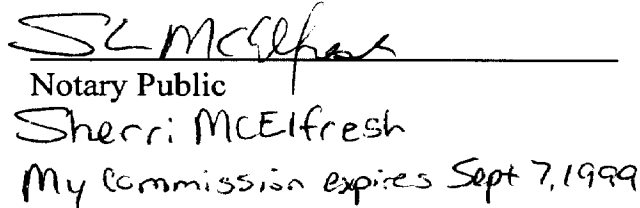 SL McElfresh
Notary Public
Sherri McElfresh
My Commission expires Sept 7, 1999